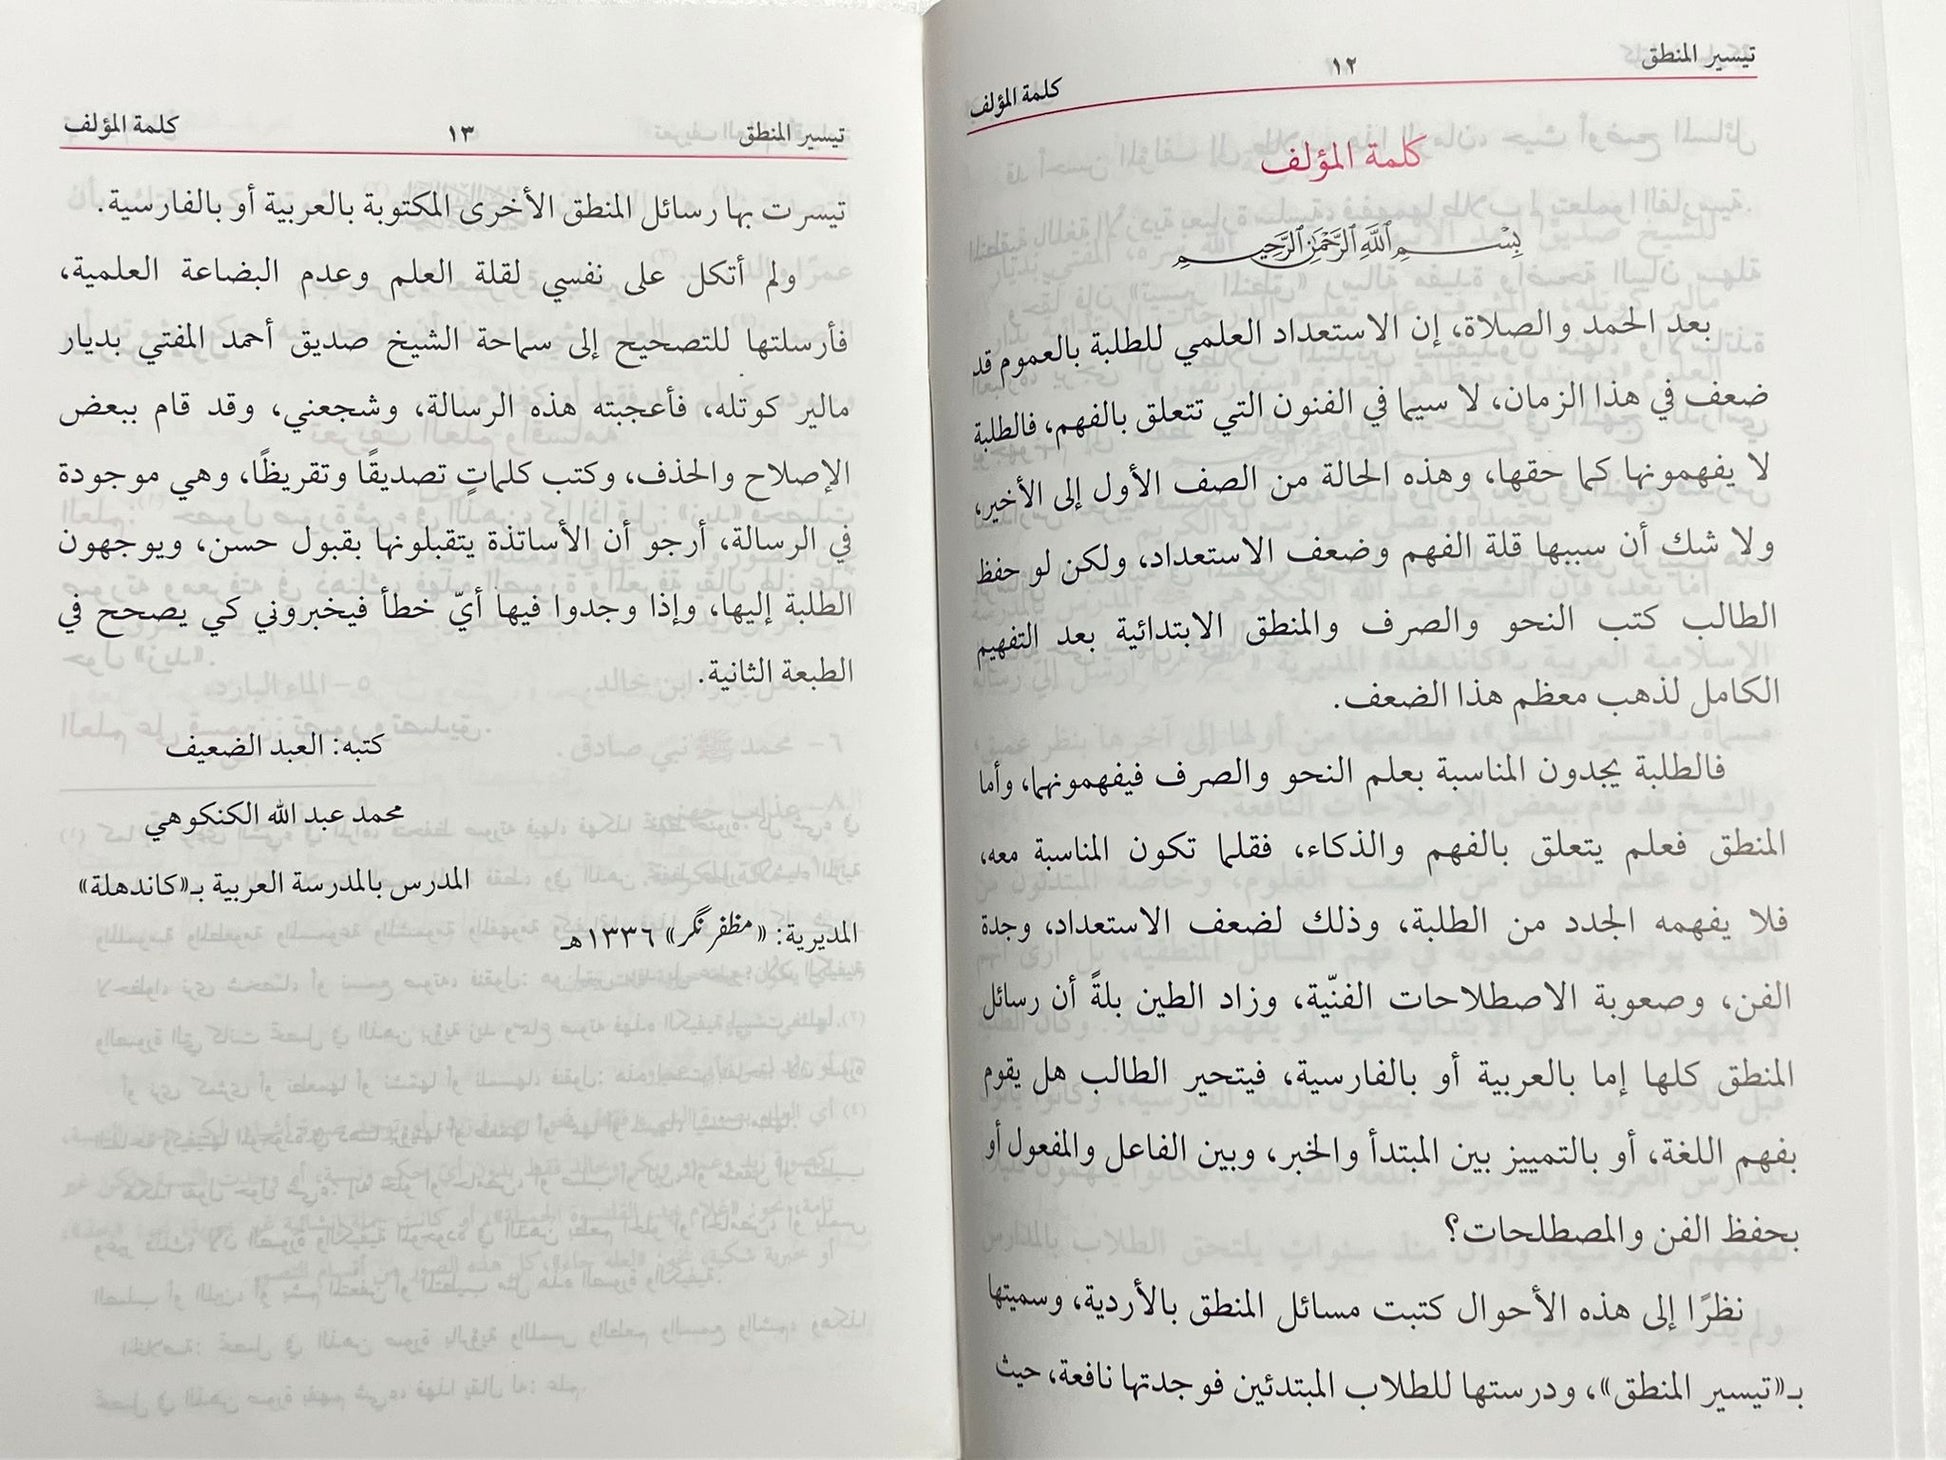 تيسير المنطق
١٢
كلمة المؤلف
كلمة المؤلف
بِسْمِ ٱللَّهِ ٱلرَّحْمَٰنِ ٱلرَّحِيمِ
بعد الحمد والصلاة، إن الاستعداد العلمي للطلبة بالعموم قد
ضعف في هذا الزمان، لا سيما في الفنون التي تتعلق بالفهم، فالطلبة
لا يفهمونها كما حقها، وهذه الحالة من الصف الأول إلى الأخير،
ولا شك أن سببها قلة الفهم وضعف الاستعداد، ولكن لو حفظ
الطالب كتب النحو والصرف والمنطق الابتدائية بعد التفهيم
الكامل لذهب معظم هذا الضعف.
فالطلبة يجدون المناسبة بعلم النحو والصرف فيفهمونهما، وأما
المنطق فعلم يتعلق بالفهم والذكاء، فقلما تكون المناسبة معه،
فلا يفهمه الجدد من الطلبة، وذلك لضعف الاستعداد، وجدة
الفن، وصعوبة الاصطلاحات الفنّية، وزاد الطين بلةً أن رسائل
المنطق كلها إما بالعربية أو بالفارسية، فيتحير الطالب هل يقوم
بفهم اللغة، أو بالتمييز بين المبتدأ والخبر، وبين الفاعل والمفعول أو
بحفظ الفن والمصطلحات؟
نظرًا إلى هذه الأحوال كتبت مسائل المنطق بالأردية، وسميتها
بـ«تيسير المنطق»، ودرستها للطلاب المبتدئين فوجدتها نافعة، حيث
تيسير المنطق
١٣
كلمة المؤلف
تيسرت بها رسائل المنطق الأخرى المكتوبة بالعربية أو بالفارسية.
ولم أتكل على نفسي لقلة العلم وعدم البضاعة العلمية،
فأرسلتها للتصحيح إلى سماحة الشيخ صديق أحمد المفتي بديار
مالير كوتله، فأعجبته هذه الرسالة، وشجعني، وقد قام ببعض
الإصلاح والحذف، وكتب كلماتٍ تصديقًا وتقريظًا، وهي موجودة
في الرسالة، أرجو أن الأساتذة يتقبلونها بقبول حسن، ويوجهون
الطلبة إليها، وإذا وجدوا فيها أيّ خطأ فيخبروني كي يصحح في
الطبعة الثانية.
كتبه: العبد الضعيف
محمد عبد الله الكنكوهي
المدرس بالمدرسة العربية بـ«كاندهلة»
المديرية: «مظفر نگر» ١٣٣٦هـ